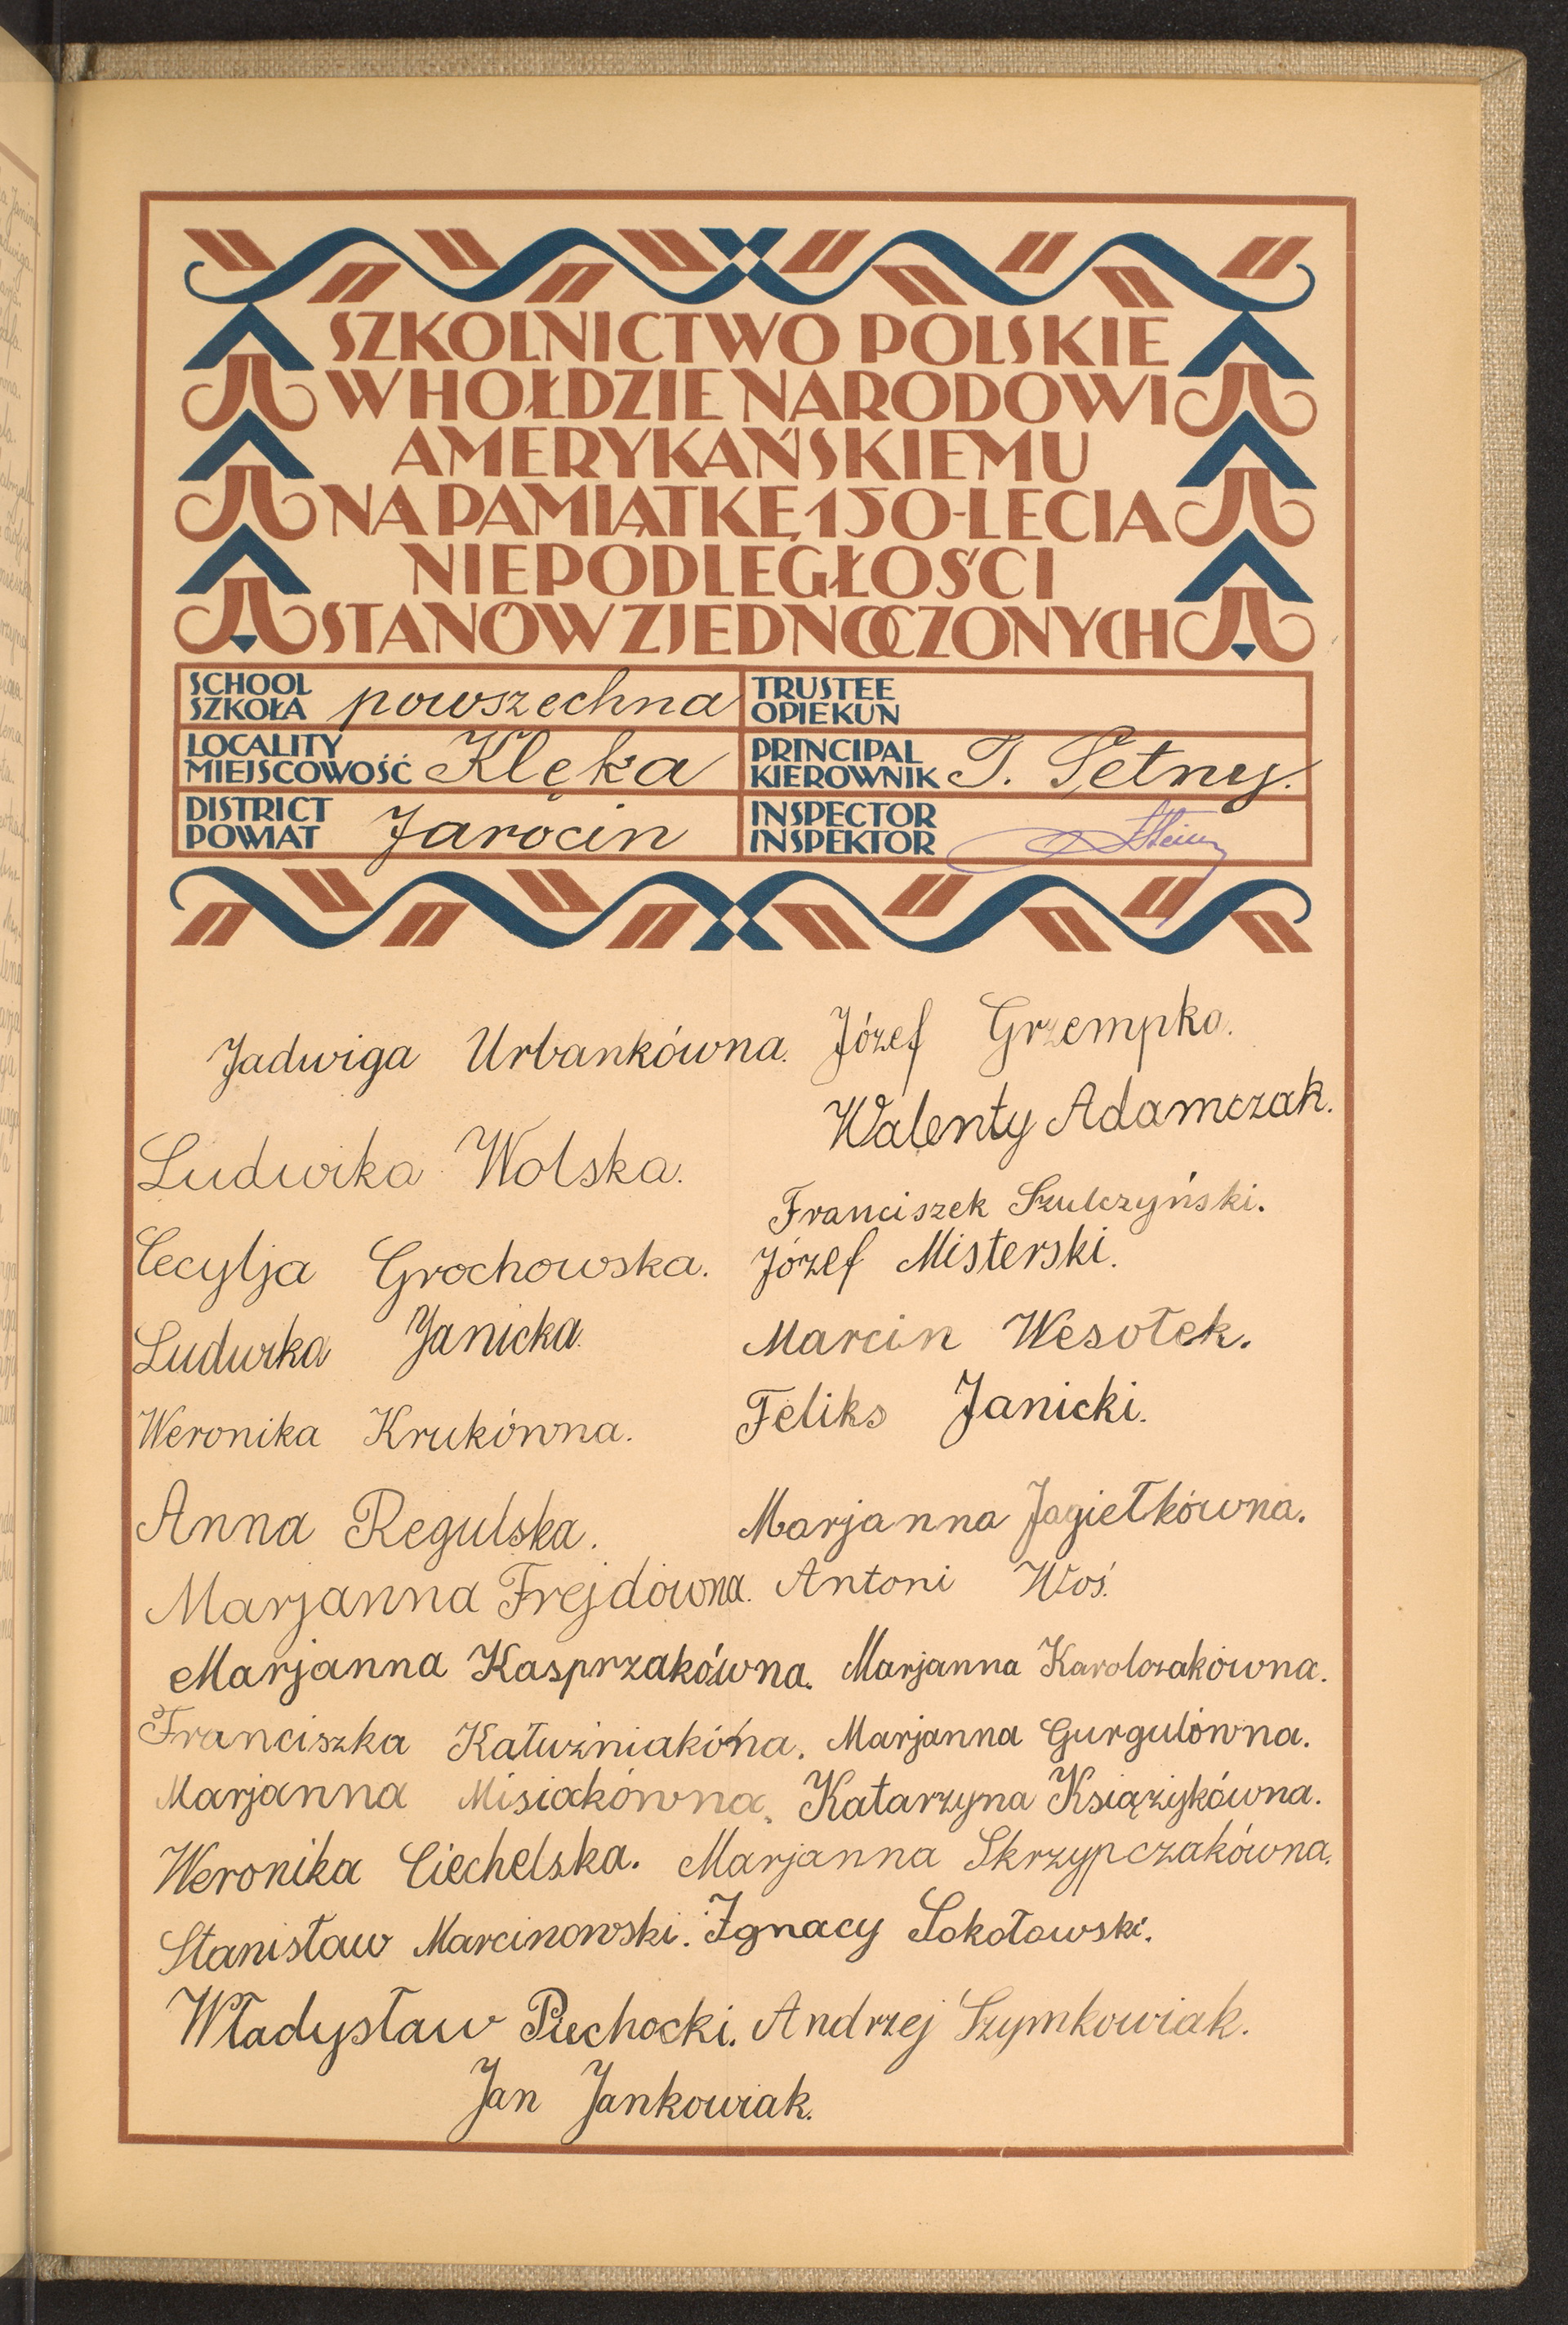 SZKOLNICTWO POLSKIE
W HOŁDZIE NARODOWI
AMERYKAŃSKIEMU
NA PAMIĄTKĘ 150-LECIA
NIEPODLEGŁOŚCI
STANÓW ZJEDNOCZONYCH
SCHOOL
SZKOŁA powszechna
TRUSTEE
OPIEKUN
LOCALITY
MIEJSCOWOŚĆ Klęka
PRINCIPAL
KIEROWNIK T. Setny.
DISTRICT
POWIAT Jarocin
INSPECTOR
INSPEKTOR
Jadwiga Urbankówna. Józef Grzempka.
Walenty Adamczak.
Ludwika Wolska.
Franciszek Szulczyński.
Cecylja Grochowska. Józef Misterski.
Ludwika Janicka. Marcin Wesołek.
Weronika Krukówna. Feliks Janicki.
Anna Regulska. Marjanna Jagiełkówna.
Marjanna Frejdówna. Antoni Woś.
Marjanna Kasprzakówna. Marjanna Karolczakówna.
Franciszka Kałużniakówna. Marjanna Gurgulówna.
Marjanna Misiakówna. Katarzyna Książykówna.
Weronika Ciechelska. Marjanna Skrzypczakówna.
Stanisław Marcinowski. Ignacy Sokołowski.
Władysław Piechocki. Andrzej Szymkowiak.
Jan Jankowiak.